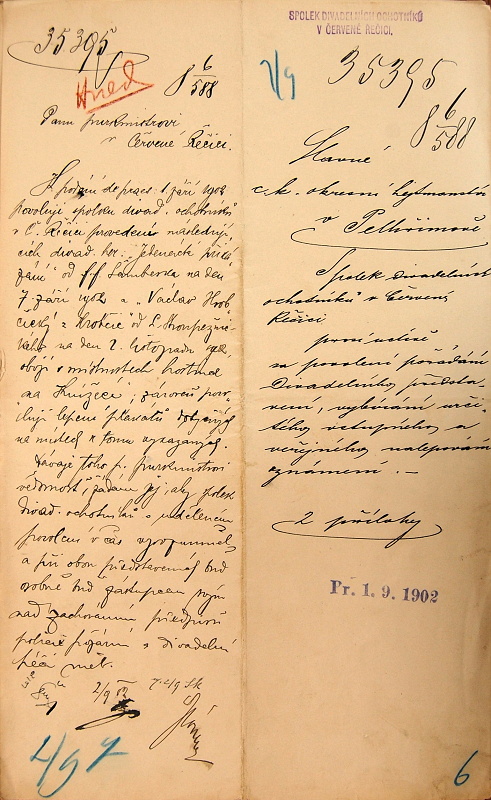 35395
Hned
8 6/588
Panu purkmistrovi
v Červené Řečici.
K podání de praes. 1. září 1902
povoluji spolku divad. ochotníků
v Č. Řečici provedení následují-
cích divad. her: "Jedenácté přiká-
zání" od F. F. Šamberka na den
7. září 1902 a "Václav Hrob-
čický z Hrobčic" od L. Stroupežnic-
kého na den 2. listopadu 1902,
obojí v místnostech hostince
"na Knížecí", zároveň povo-
luji lepení plakátů
na místech k tomu vykázaných.
Dávaje toho p. purkmistrovi
vědomost, žádám jej, aby spolek
divad. ochotníků o uděleném
povolení v čas vyrozuměl
a při obou představeních buď
osobně buď zástupcem svým
nad zachováním předpisů
policie požární a divadelní
péči měl.
2/9
4/9
SPOLEK DIVADELNÍCH OCHOTNÍKŮ
V ČERVENÉ ŘEČICI.
2/9
35395
8 6/588
Slavné
c.k. okresní hejtmanství
v Pelhřimově
Spolek divadelních
ochotníků v Červené
Řečici
prosí uctivě
za povolení pořádání
divadelního předsta-
vení, vybírání urči-
tého vstupného a
veřejného nalepování
oznámení. —
2 přílohy
Pr. 1. 9. 1902
6